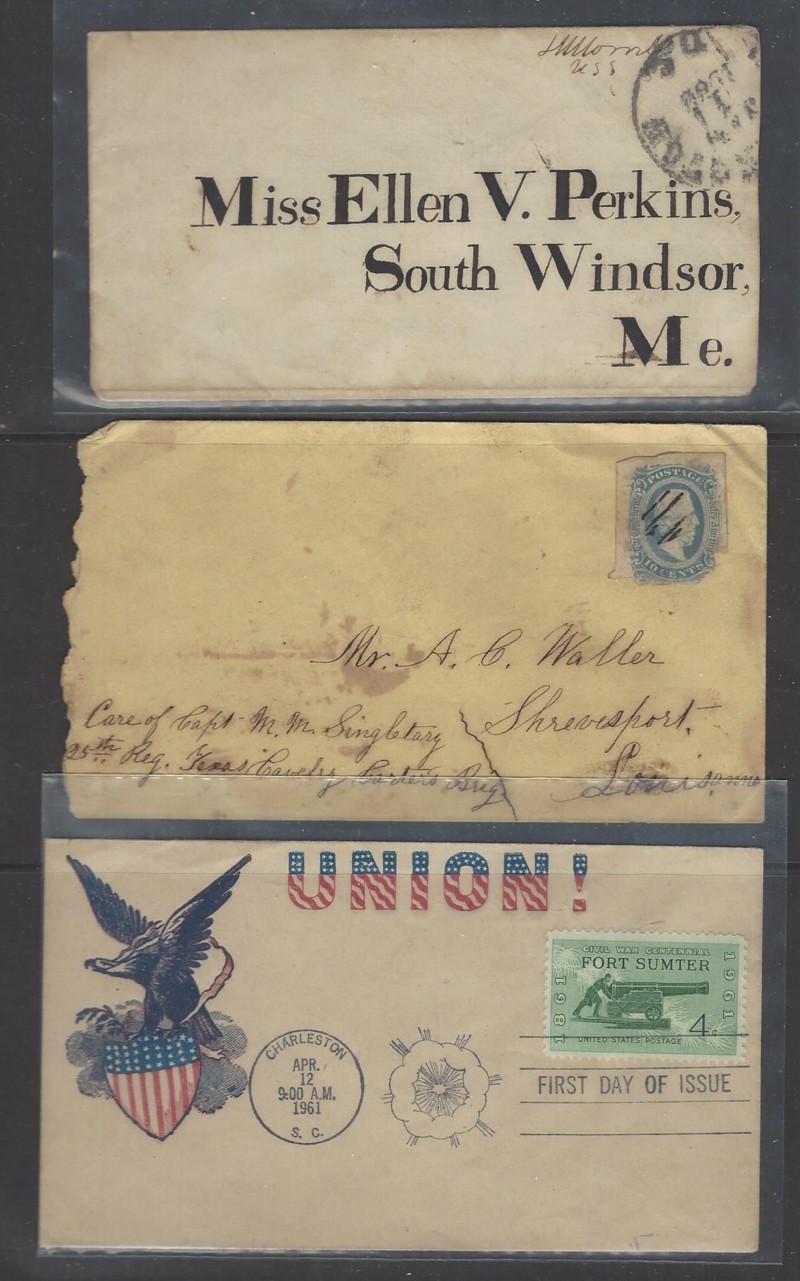 USS
Miss Ellen V. Perkins,
South Windsor,
Me.
POSTAGE
10 CENTS
Mr. A. C. Waller
Care of Capt. M. M. Singletary
Shrevesport.
25th Reg. Texas Cavelry Carter's Brig
Louisianna
UNION!
CIVIL WAR CENTENNIAL
FORT SUMTER
1861
1961
4c
UNITED STATES POSTAGE
CHARLESTON
APR.
12
9:00 A.M.
1961
S. C.
FIRST DAY OF ISSUE